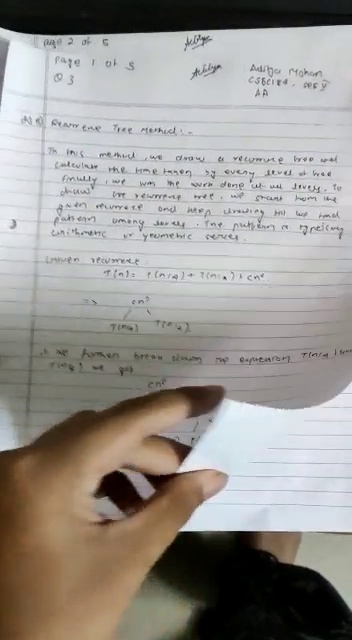 page 2 of 5
Aditya
Page 1 of 5
Aditya
Aditya Mohan
Q3
AA
Recurrence Tree Method:-
In this method, we draw a recurrence tree and
calculate the time taken by every level of tree
finally, we sum the work done at all levels. To
draw the recurrence tree, we start from the
given recurrence and keep drawing till we find
pattern among levels. The pattern is typically
arithmetic or geometric series.
Given recurrence
T(n) = T(n/4) + T(n/2) + cn²
=> cn²
T(n/4) T(n/2)
we further break down the expression T(n/4) and
we get
cn²